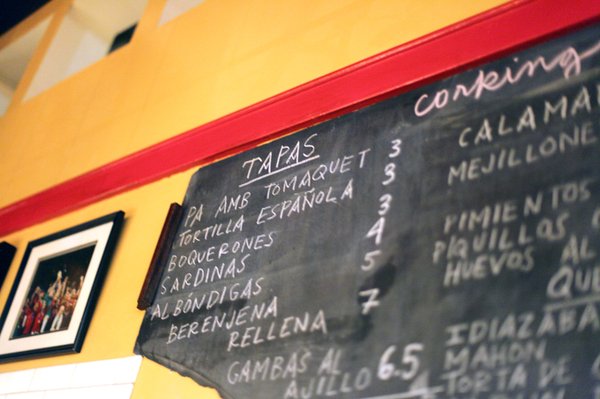 TAPAS
PA AMB TOMAQUET 3
TORTILLA ESPAÑOLA 3
BOQUERONES 3
SARDINAS 4
ALBÓNDIGAS 5
BERENJENA
RELLENA 7
GAMBAS AL
AJILLO 6.5
corking
CALAMAR
MEJILLONE
PIMIENTOS
PIQUILLOS
HUEVOS AL
QUE
IDIAZABA
MAHON
TORTA DE